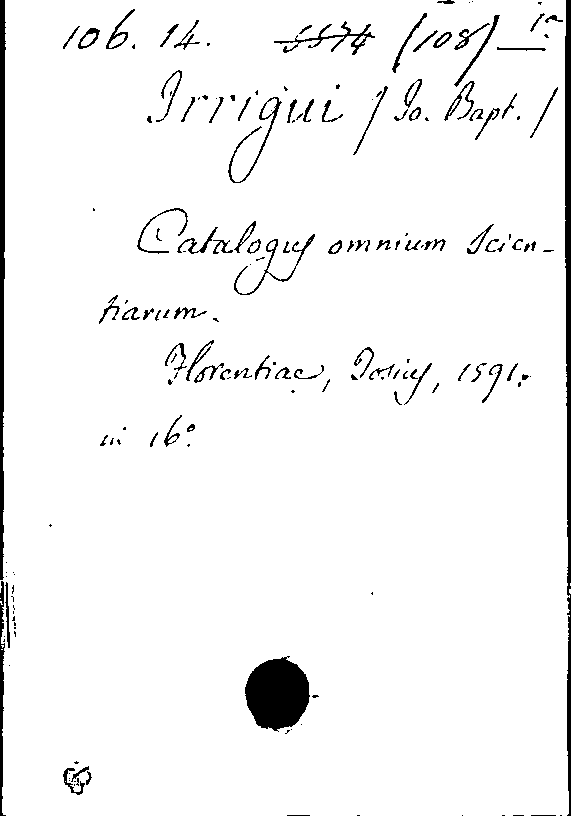 106. 14. 5574 (108) 1a
Irrigui / Jo. Bapt. /
Catalogus omnium Scien-
tiarum.
Florentiae, Josius, 1591.
in 16°